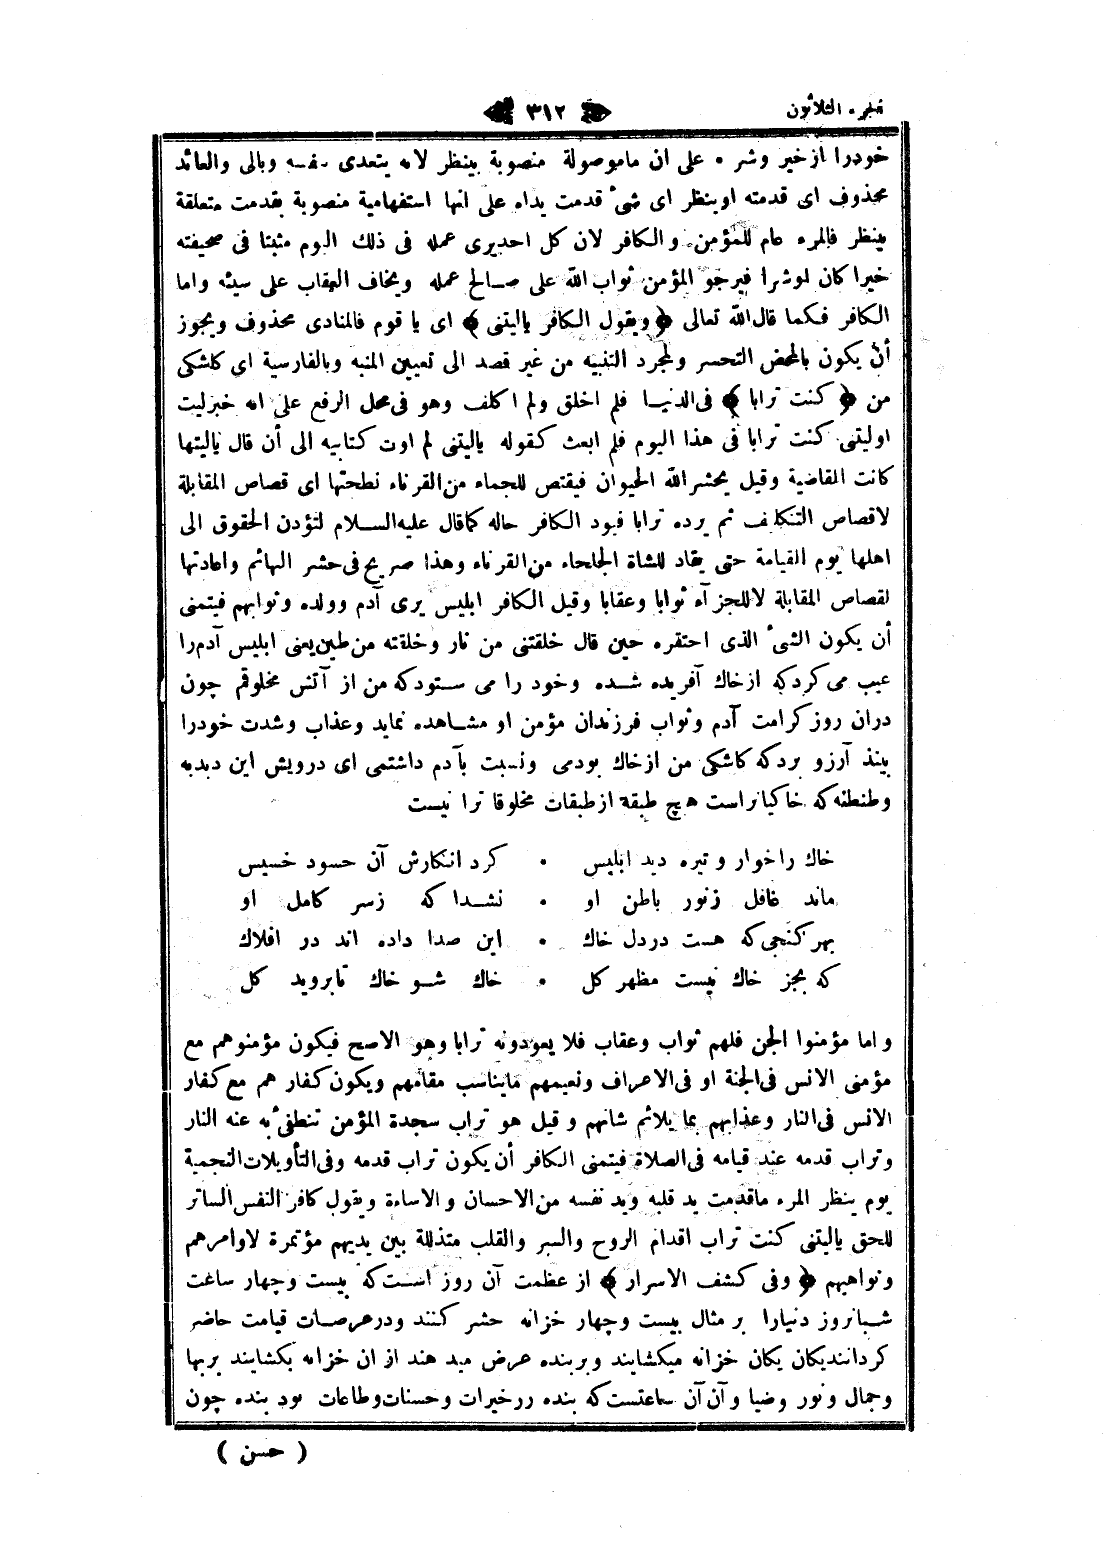 الجزء الثلاثون
٣١٢
خودرا ازخير وشر * على ان ماموصولة منصوبة بينظر لانه يتعدى بنفسه وبالى والعائد
محذوف اى قدمته اوينظر اى شئ قدمت يداه على انها استفهامية منصوبة بقدمت متعلقة
بينظر فالمرء عام للمؤمن والكافر لان كل احديرى عمله فى ذلك اليوم مثبتا فى صحيفته
خيرا كان اوشرا فيرجو المؤمن ثواب الله على صالح عمله ويخاف العقاب على سيئه واما
الكافر فكما قال الله تعالى ﴿ ويقول الكافر ياليتنى ﴾ اى يا قوم فالمنادى محذوف ويجوز
أن يكون يالمحض التحسر ولمجرد التنبيه من غير قصد الى تعيين المنبه وبالفارسية اى كاشكى
من ﴿ كنت ترابا ﴾ فى الدنيا فلم اخلق ولم اكلف وهو فى محل الرفع على انه خبرليت
اوليتنى كنت ترابا فى هذا اليوم فلم ابعث كقوله ياليتنى لم اوت كتابيه الى أن قال ياليتها
كانت القاضية وقيل يحشرالله الحيوان فيقتص للجماء من القرناء نطحتها اى قصاص المقابلة
لاقصاص التكليف ثم يرده ترابا فيود الكافر حاله كماقال عليه السلام لتؤدن الحقوق الى
اهلها يوم القيامة حتى يقاد للشاة الجلحاء من القرناء وهذا صريح فى حشر البهائم واعادتها
لقصاص المقابلة لاللجزآء ثوابا وعقابا وقيل الكافر ابليس يرى آدم وولده وثوابهم فيتمنى
أن يكون الشئ الذى احتقره حين قال خلقتنى من نار وخلقته من طين يعنى ابليس آدم را
عيب مى كردكه ازخاك آفريده شده وخود را مى ستودكه من از آتش مخلوقم چون
دران روز كرامت آدم وثواب فرزندان مؤمن او مشاهده نمايد وعذاب وشدت خودرا
بيند آرزو بردكه كاشكى من ازخاك بودمى ونسبت بآدم داشتمى اى درويش اين دبدبه
وطنطنه كه خاكيانراست هيچ طبقه ازطبقات مخلوقا ترا نيست
خاك راخوار وتيره ديد ابليس * كرد انكارش آن حسود خسيس
ماند غافل زنور باطن او * نشدآ كه زسر كامل او
بهر كنجى كه هست دردل خاك * اين صدا داده اند در افلاك
كه بجز خاك نيست مظهر كل * خاك شو خاك تابرويد كل
واما مؤمنوا الجن فلهم ثواب وعقاب فلا يعودونه ترابا وهو الاصح فيكون مؤمنوهم مع
مؤمنى الانس فى الجنة او فى الاعراف ونعيمهم مايناسب مقامهم ويكون كفار هم مع كفار
الانس فى النار وعذابهم بما يلائم شانهم وقيل هو تراب سجدة المؤمن تنطفئ به عنه النار
وتراب قدمه عند قيامه فى الصلاة فيتمنى الكافر أن يكون تراب قدمه وفى التأويلات النجمية
يوم ينظر المرء ماقدمت يد قلبه ويد نفسه من الاحسان والاساءة ويقول كافر النفس الساتر
للحق ياليتنى كنت تراب اقدام الروح والسر والقلب متذللة بين يديهم مؤتمرة لاوامرهم
ونواهيهم ﴿ وفى كشف الاسرار ﴾ از عظمت آن روز است كه بيست وچهار ساغت
شبانروز دنيارا بر مثال بيست وچهار خزانه حشر كنند ودرعرصات قيامت حاضر
كردانند يكان يكان خزانه ميكشايند وبربنده عرض ميد هند از ان خزانه بكشايند پربها
وجمال ونور وضيا وآن آن ساعتست كه بنده درخيرات وحسنات وطاعات بود بنده چون
( حسن )